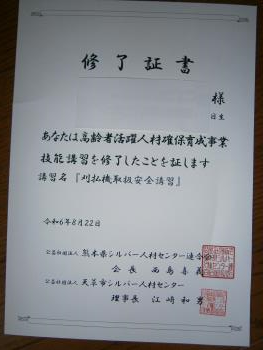 修了証書
様
日生
あなたは高齢者活躍人材確保育成事業
技能講習を修了したことを証します
講習名『刈払機取扱安全講習』
令和6年8月22日
公益社団法人 熊本県シルバー人材センター連合会
会長 西島喜義
公益社団法人 天草市シルバー人材センター
理事長 江﨑和男